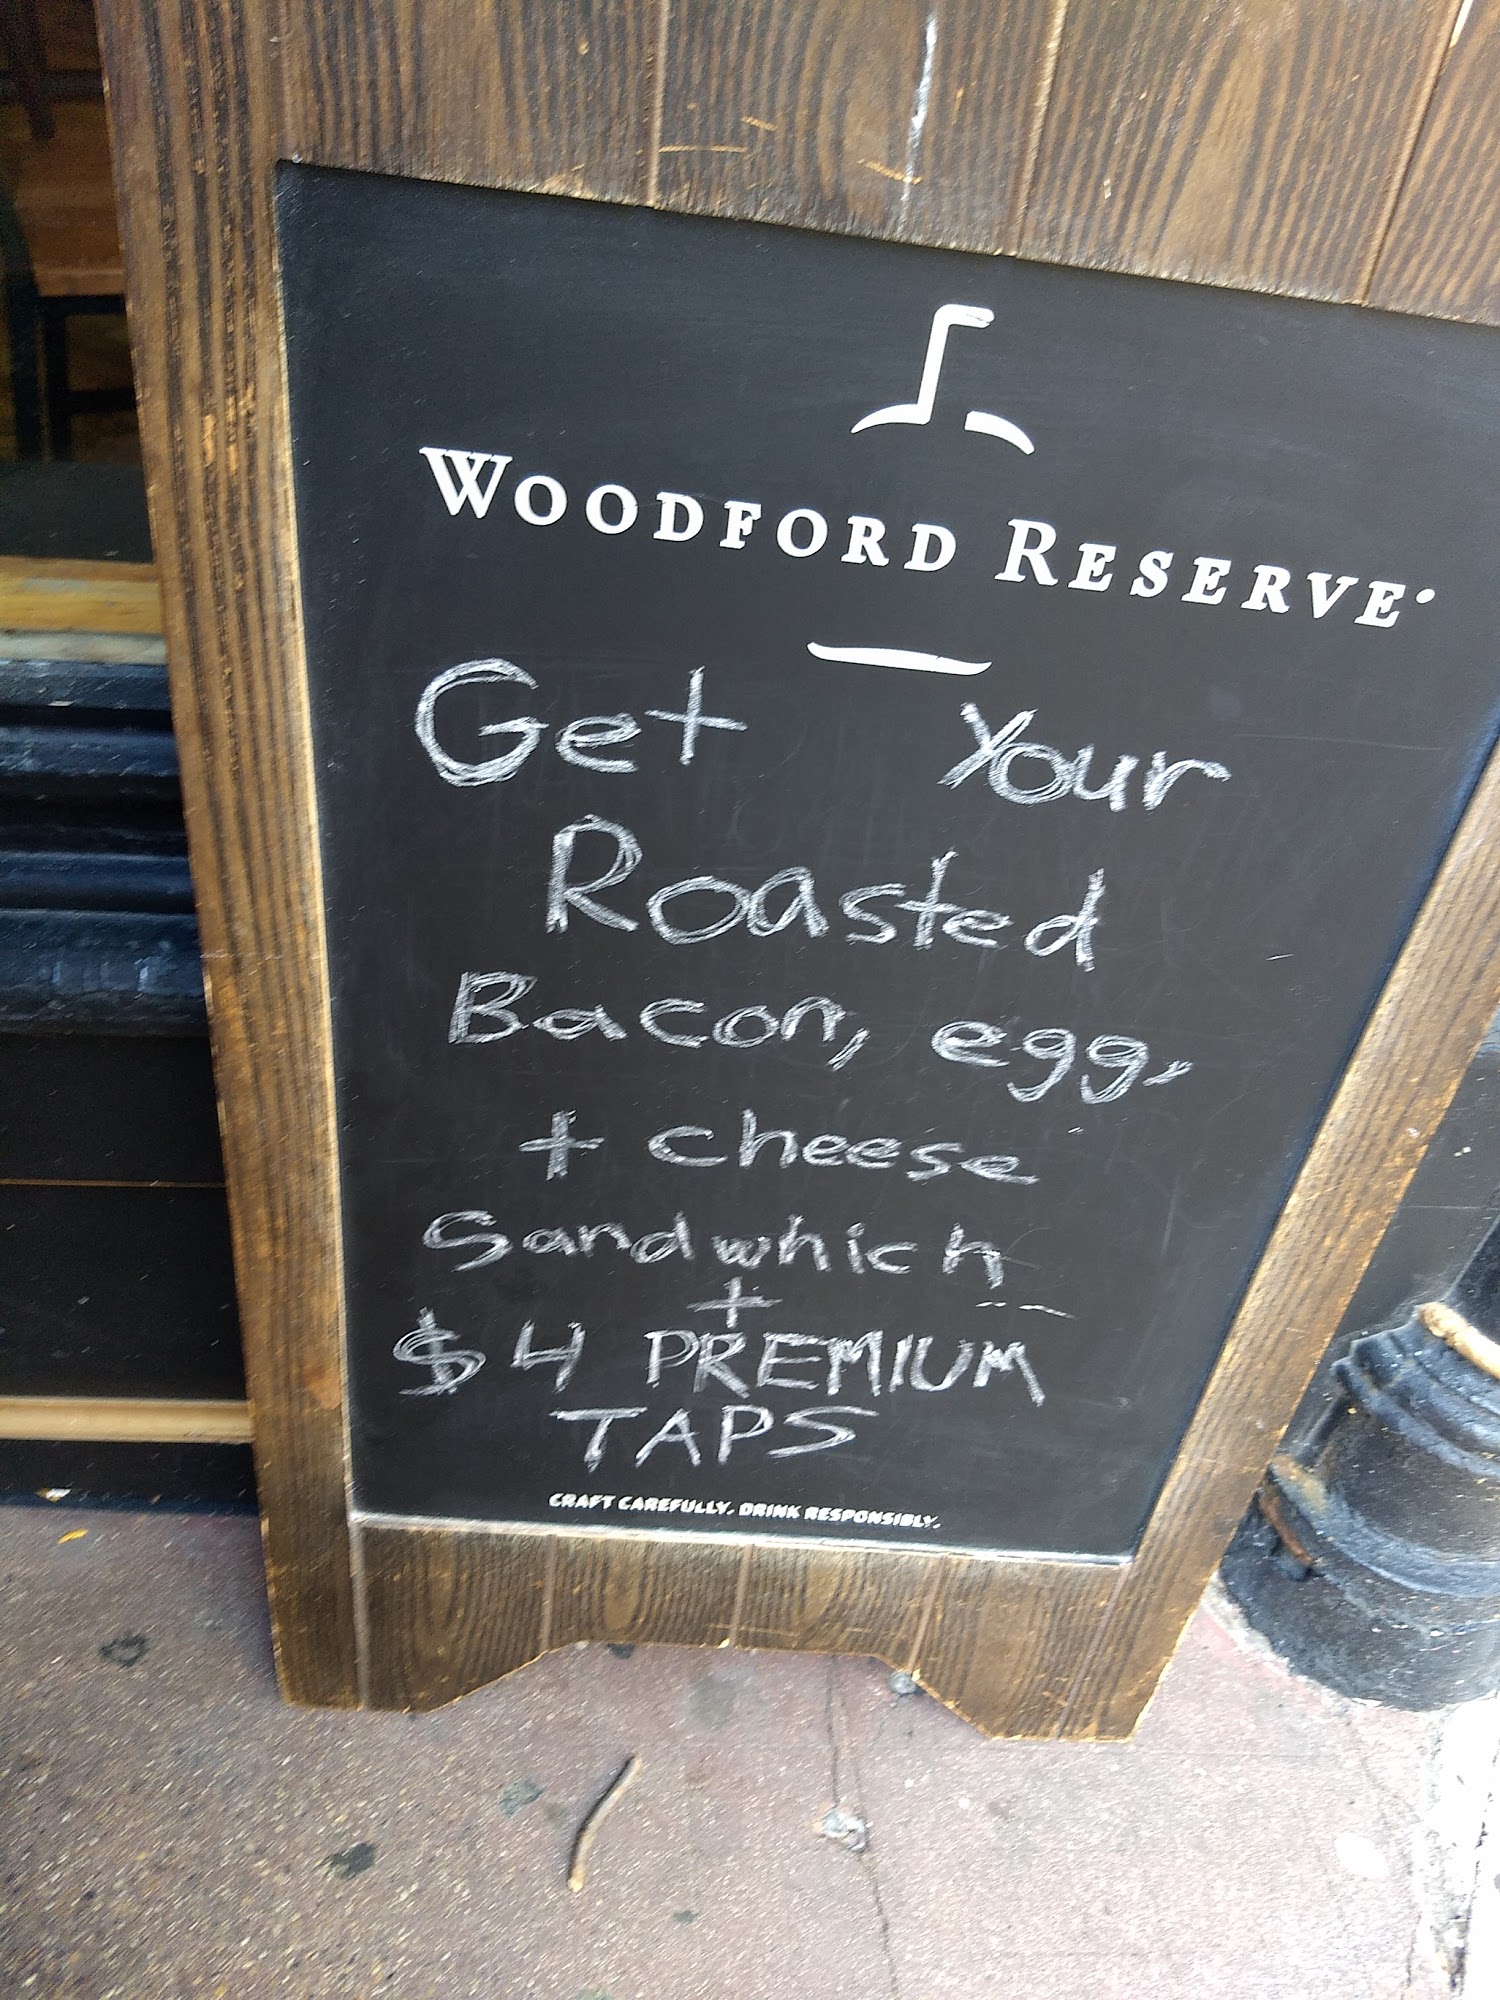 WOODFORD RESERVE
Get Your
Roasted
Bacon, egg,
+ cheese
Sandwhich
+
$4 PREMIUM
TAPS
CRAFT CAREFULLY. DRINK RESPONSIBLY.